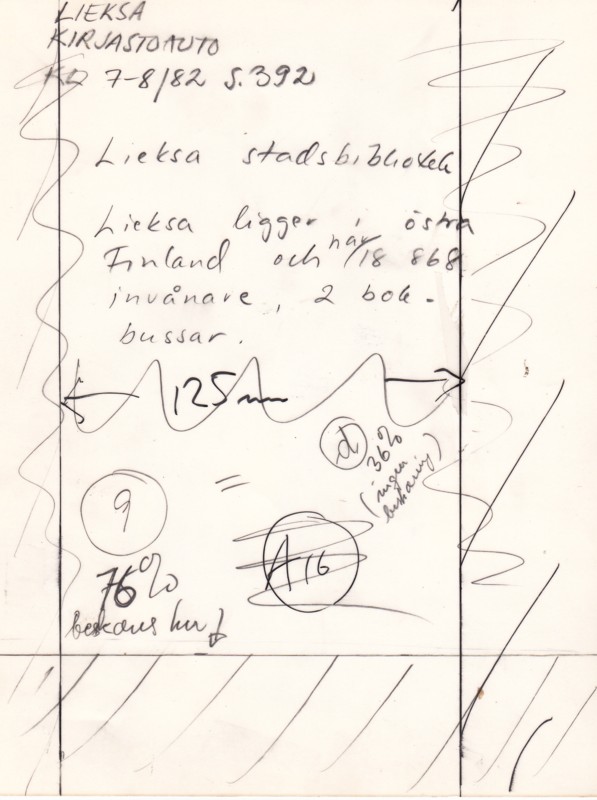 LIEKSA
KIRJASTOAUTO
KL 7-8/82 S.392
Lieksa stadsbibliotek
Lieksa ligger i östra
Finland och har 18 868
invånare, 2 bok-
bussar.
125 mm
d
36%
(ingen
beskäring)
9
=
76%
beskäres hur
A16